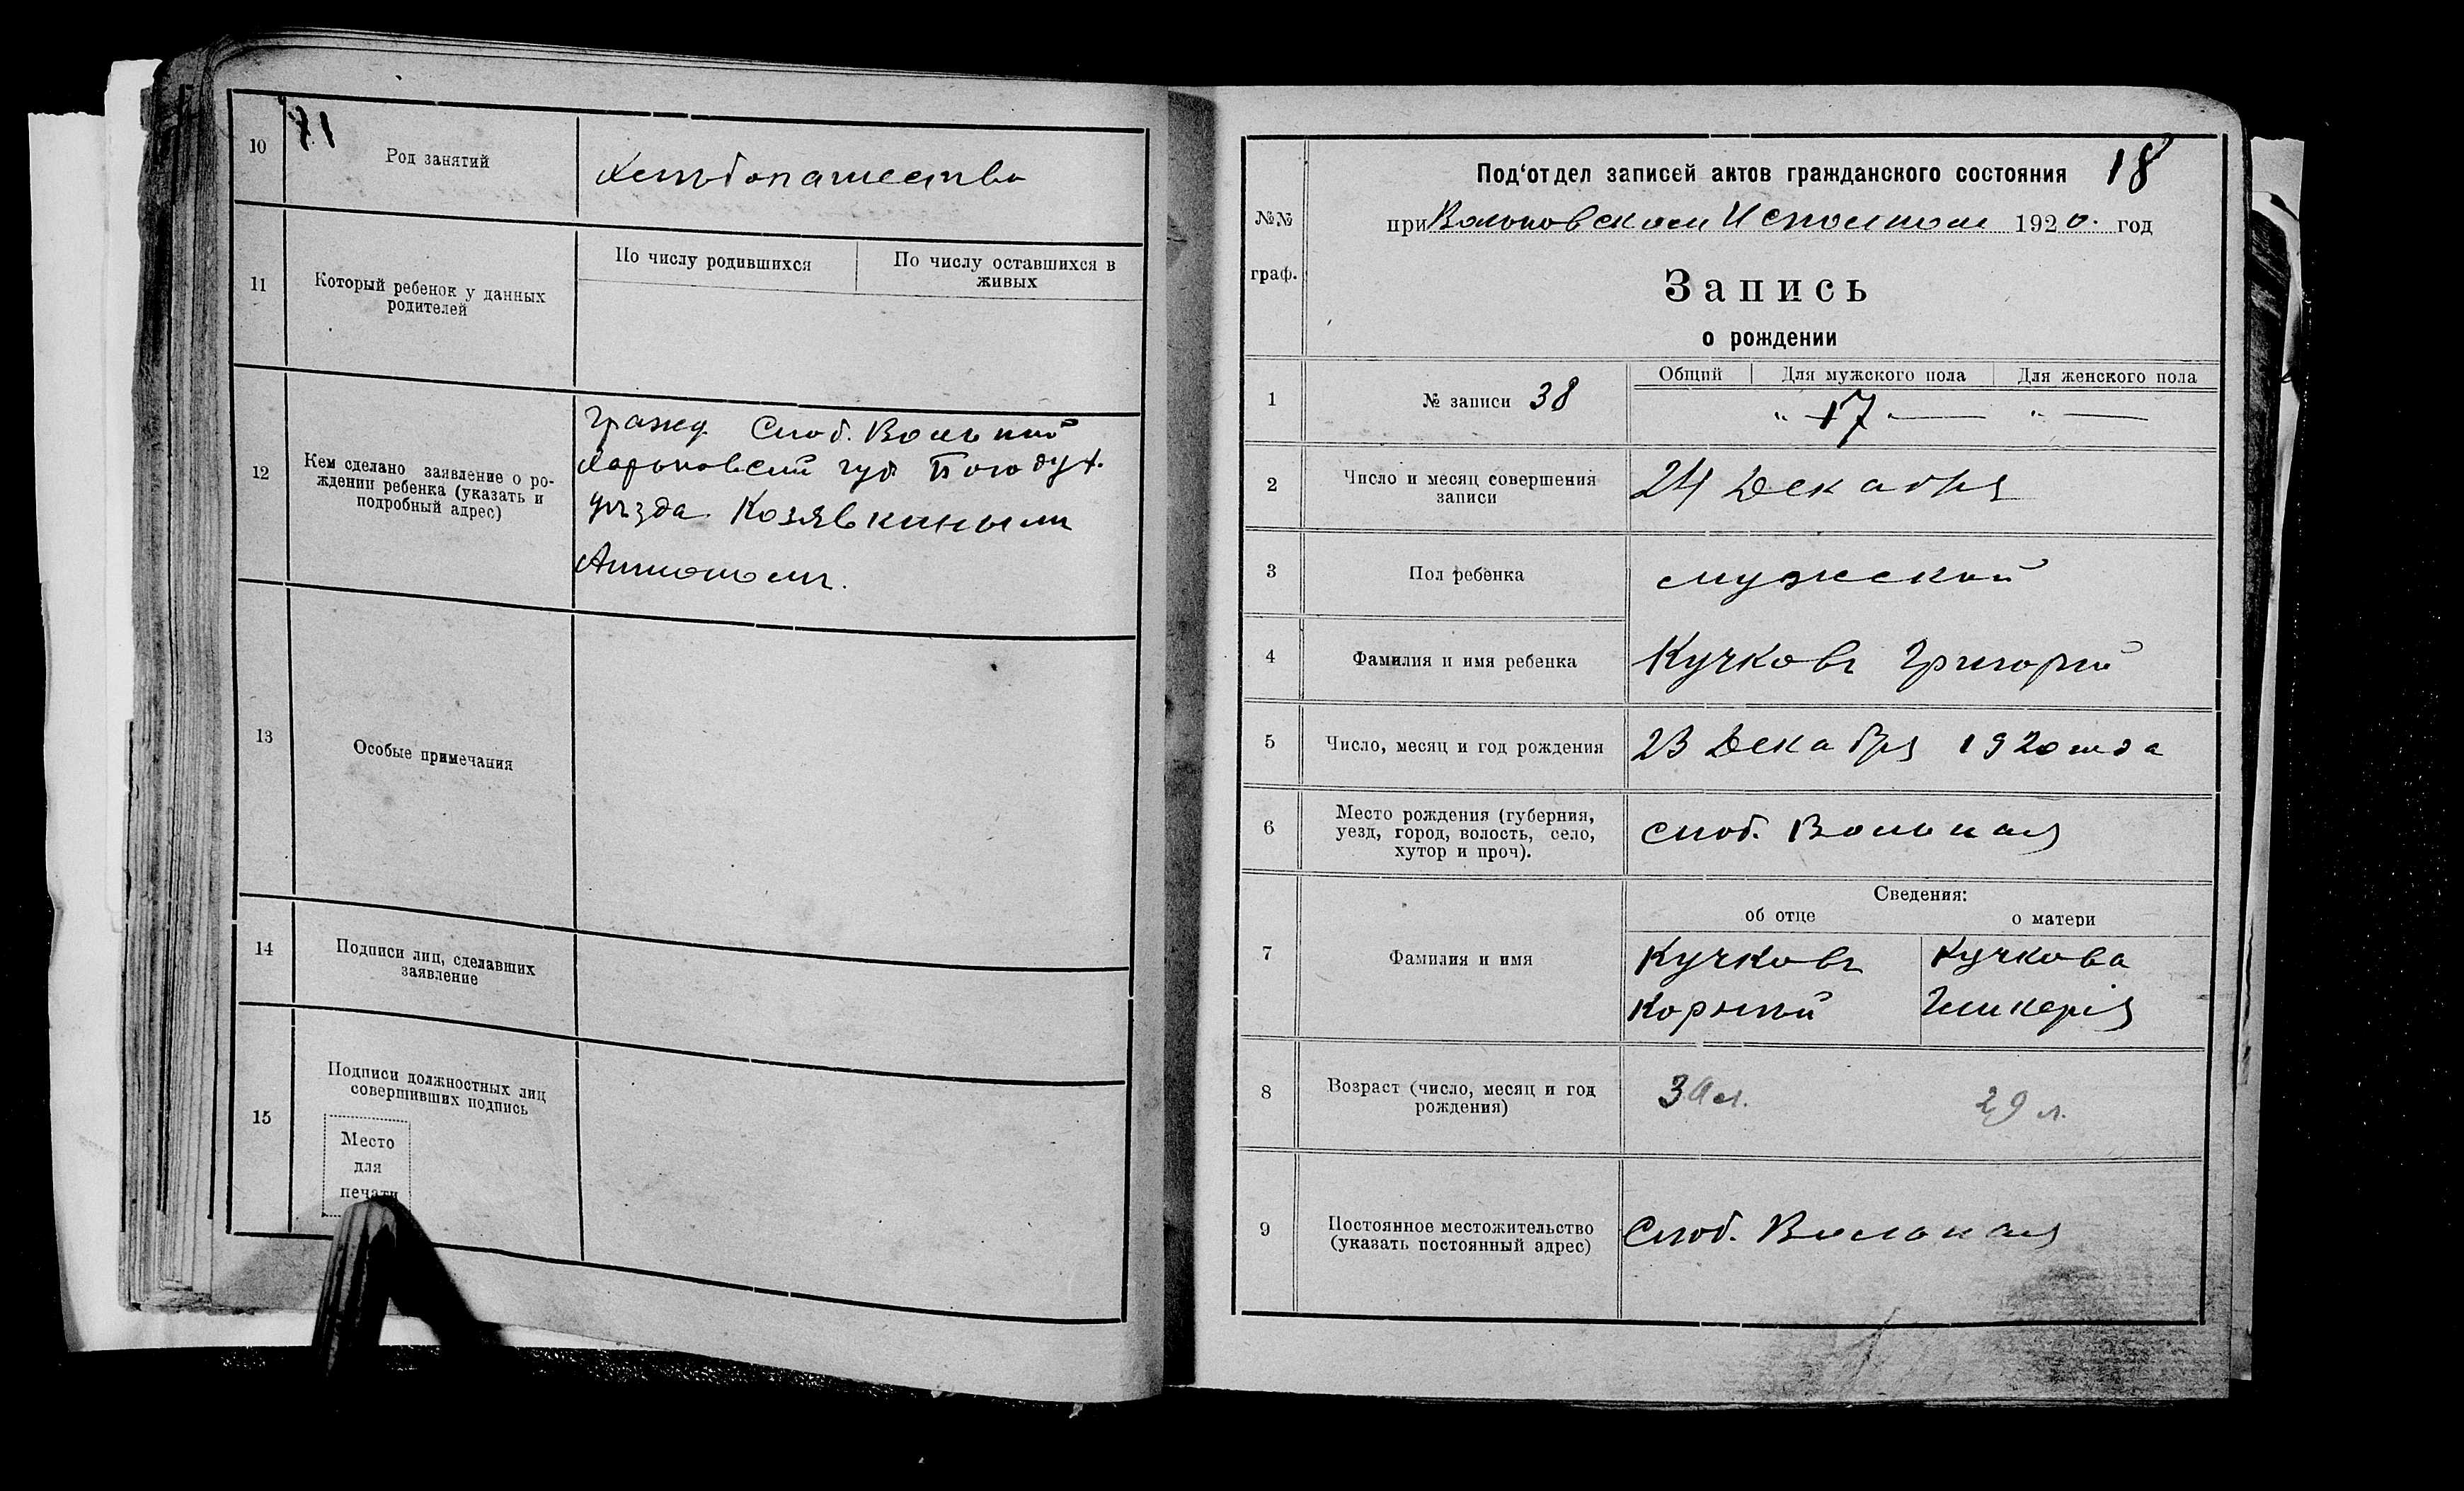 10
Род занятий
Хлѣбопашество
11
Который ребенок у данных
родителей
По числу родившихся
По числу оставшихся в
живых
12
Кем сделано заявление о ро-
ждении ребенка (указать и
подробный адрес)
гражд. Слоб. Вольной
Харьковской губ Богодух.
уѣзда Козявкинымъ
13
Особые примечания
14
Подписи лиц, сделавших
заявление
15
Подписи должностных лиц
совершивших подпись
Место
для
печати
18
№№
граф.
Под‘отдел записей актов гражданского состояния
при Исполком 1920. год
Запись
о рождении
1
№ записи 38
Общий
Для мужского пола
Для женского пола
" 17 " — " —
2
Число и месяц совершения
записи
24 Декабря
3
Пол ребенка
мужской
4
Фамилия и имя ребенка
Кучковъ Григорий
5
Число, месяц и год рождения
23 Декабря 1920 года
6
Место рождения (губерния,
уезд, город, волость, село,
хутор и проч).
слоб. Вольная
7
Фамилия и имя
Сведения:
об отце
о матери
Кучковъ
Корнѣй
Кучкова
Гликерія
8
Возраст (число, месяц и год
рождения)
29 л.
9
Постоянное местожительство
(указать постоянный адрес)
Слоб. Вольная